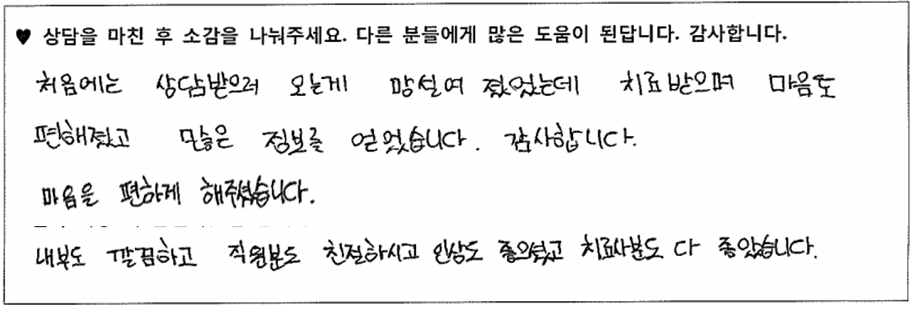 ♥ 상담을 마친 후 소감을 나눠주세요. 다른 분들에게 많은 도움이 된답니다. 감사합니다.
처음에는 상담받으러 오는게 망설여 졌었는데 치료받으며 마음도
편해졌고 많은 정보를 얻었습니다. 감사합니다.
마음을 편하게 해주셨습니다.
내부도 깔끔하고 직원분도 친절하시고 인상도 좋으셨고 치료사분도 다 좋았습니다.